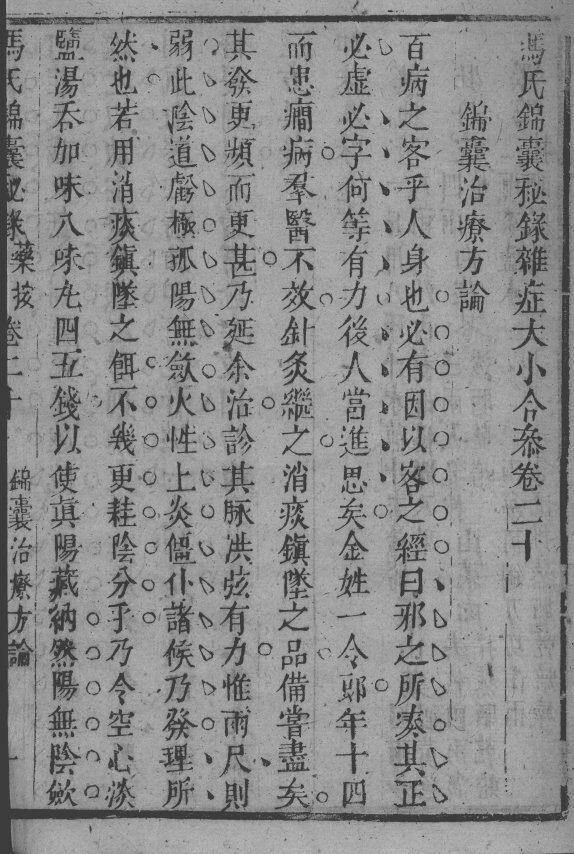 馮氏錦囊秘錄雜症大小合叅卷二十
錦囊治療方論
百病之客乎人身也必有因以客之經曰邪之所湊其正
必虛必字何等有力後人當進思矣金姓一令郎年十四
而患癎病羣醫不效針灸繼之消痰鎮墜之品備嘗盡矣
其發更頻而更甚乃延余治診其脉洪弦有力惟兩尺則
弱此陰道虧極孤陽無斂火性上炎僵仆諸候乃發理所
然也若用消痰鎮墜之餌不幾更耗陰分乎乃令空心淡
鹽湯吞加味八味丸四五錢以使眞陽藏納然陽無陰斂
馮氏錦囊秘錄 藥按 卷二十 錦囊治療方論 一